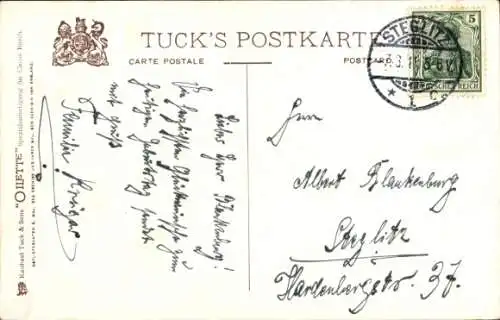 TUCK'S POSTKARTE
CARTE POSTALE
POSTCARD
STEGLITZ
1 c
5
DEUTSCHES REICH
Raphael Tuck & Sons "OILETTE"
Lieber Herr Blankenburg!
Die herzlichsten Glückwünsche zum
heutigen Geburtstag sendet
mit Gruß
Familie Krüger
Herrn
Albert Blankenburg
Steglitz
Hardenbergstr. 37.